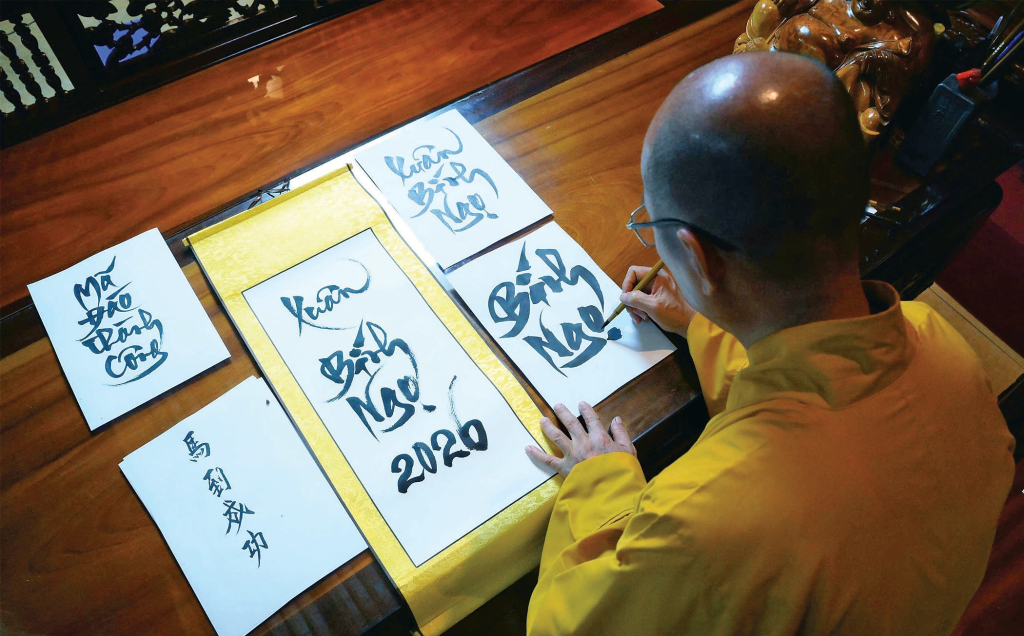 Mã
Đáo
thành
Công
馬
到
成
功
Xuân
Bính
Ngọ
2026
Xuân
Bính
Ngọ
Bính
Ngọ